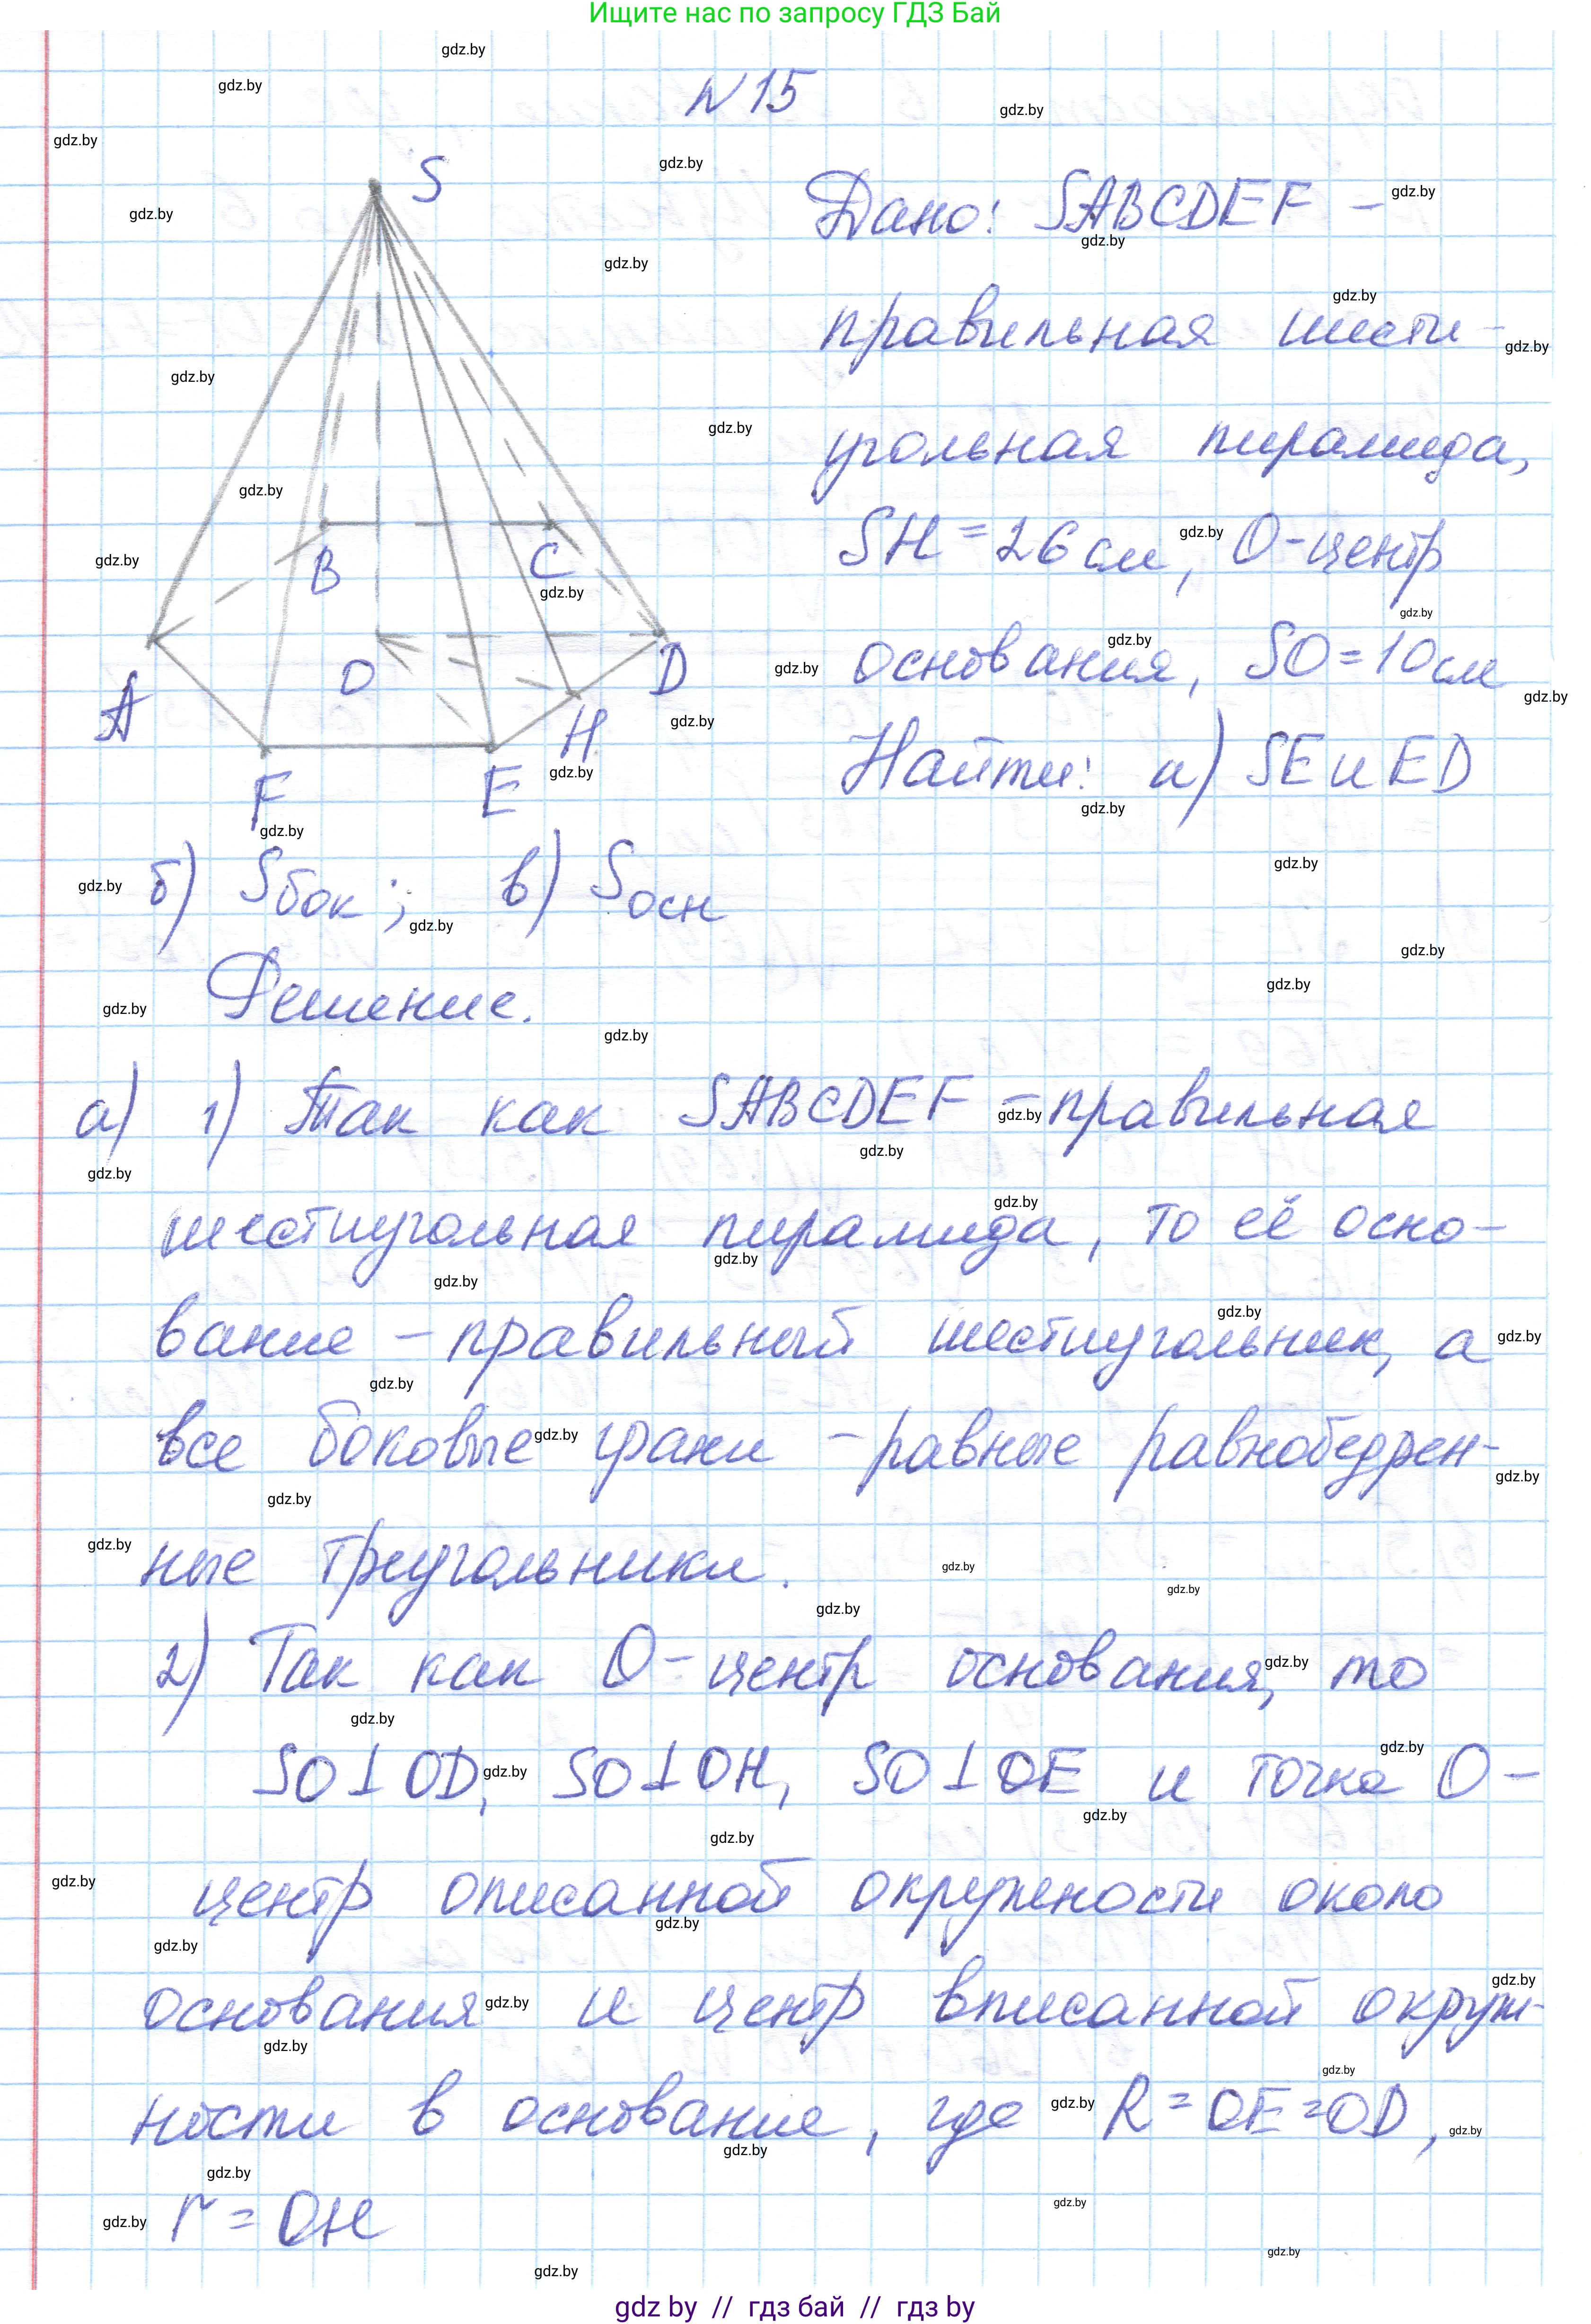 Ищите нас по запросу ГДЗ Бай
N15
S
B
C
O
D
A
H
F
E
Дано: SABCDEF –
правильная шести-
угольная пирамида,
SH = 26 см, O-центр
основания, SO = 10 см
Найти: а) SE и ED
б) Sбок; в) Sосн
Решение.
а) 1) Так как SABCDEF – правильная
шестиугольная пирамида, то её осно-
вание – правильный шестиугольник, а
все боковые грани – равные равнобедрен-
ные треугольники.
2) Так как O-центр основания, то
SO⊥OD, SO⊥OH, SO⊥OE и точка O –
центр описанной окружености около
основания и центр вписанной окруж-
ности в основание, где R = OE = OD,
r = OH
gdz by // гдз бай // гдз by